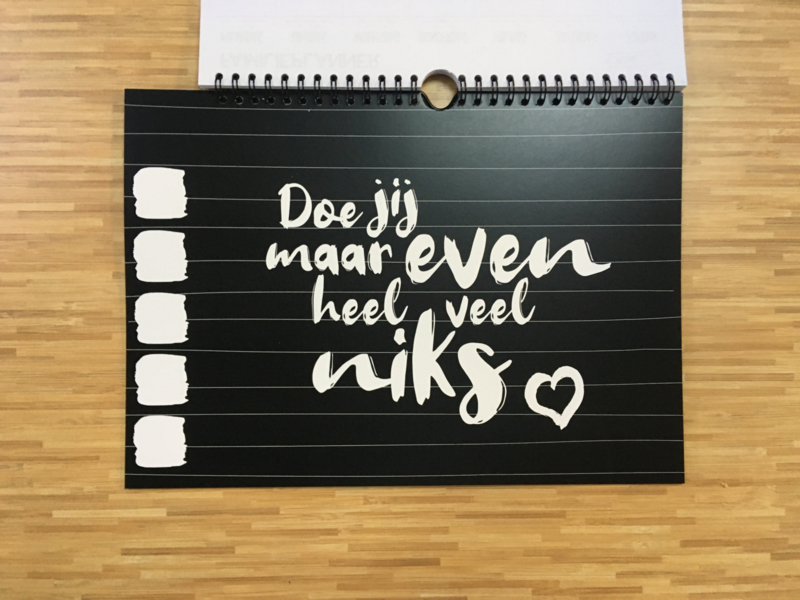 FAMILIEPLANNER
Doe jij
maar even
heel veel
niks